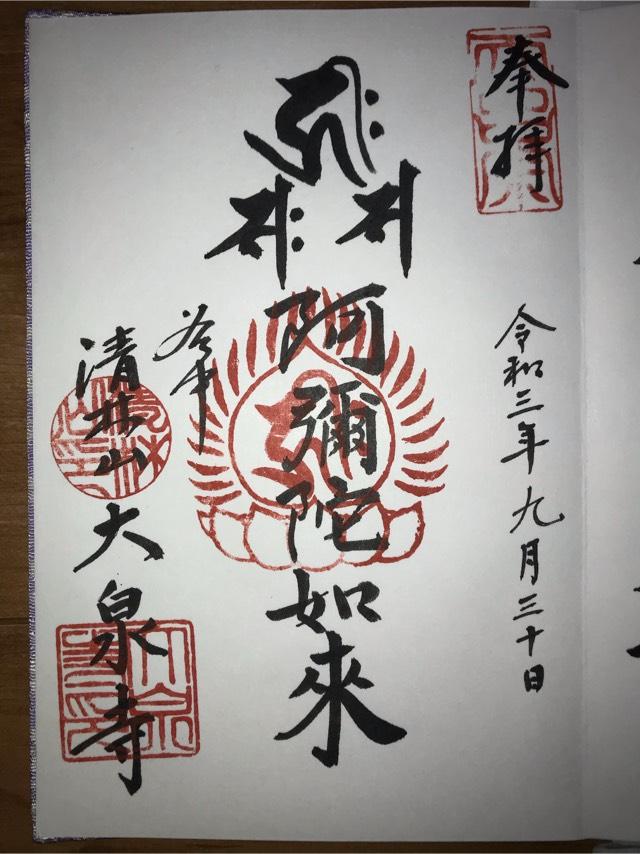 奉拝
令和三年九月三十日
阿彌陀如來
清林山
大泉寺